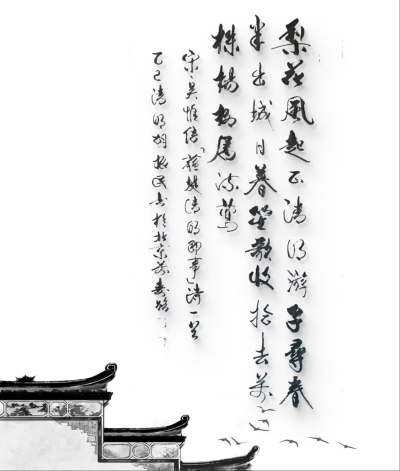 梨花風起正清明游子尋春
半出城日暮笙歌收拾去萬
株楊柳屬流鶯
宋吳惟信「蘇堤清明即事」詩一首
乙巳清明胡振民書於北京萬壽路